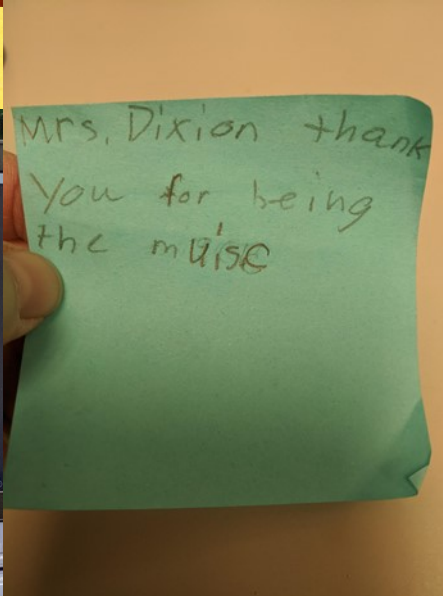 Mrs. Dixion thank
You for being
the muisc